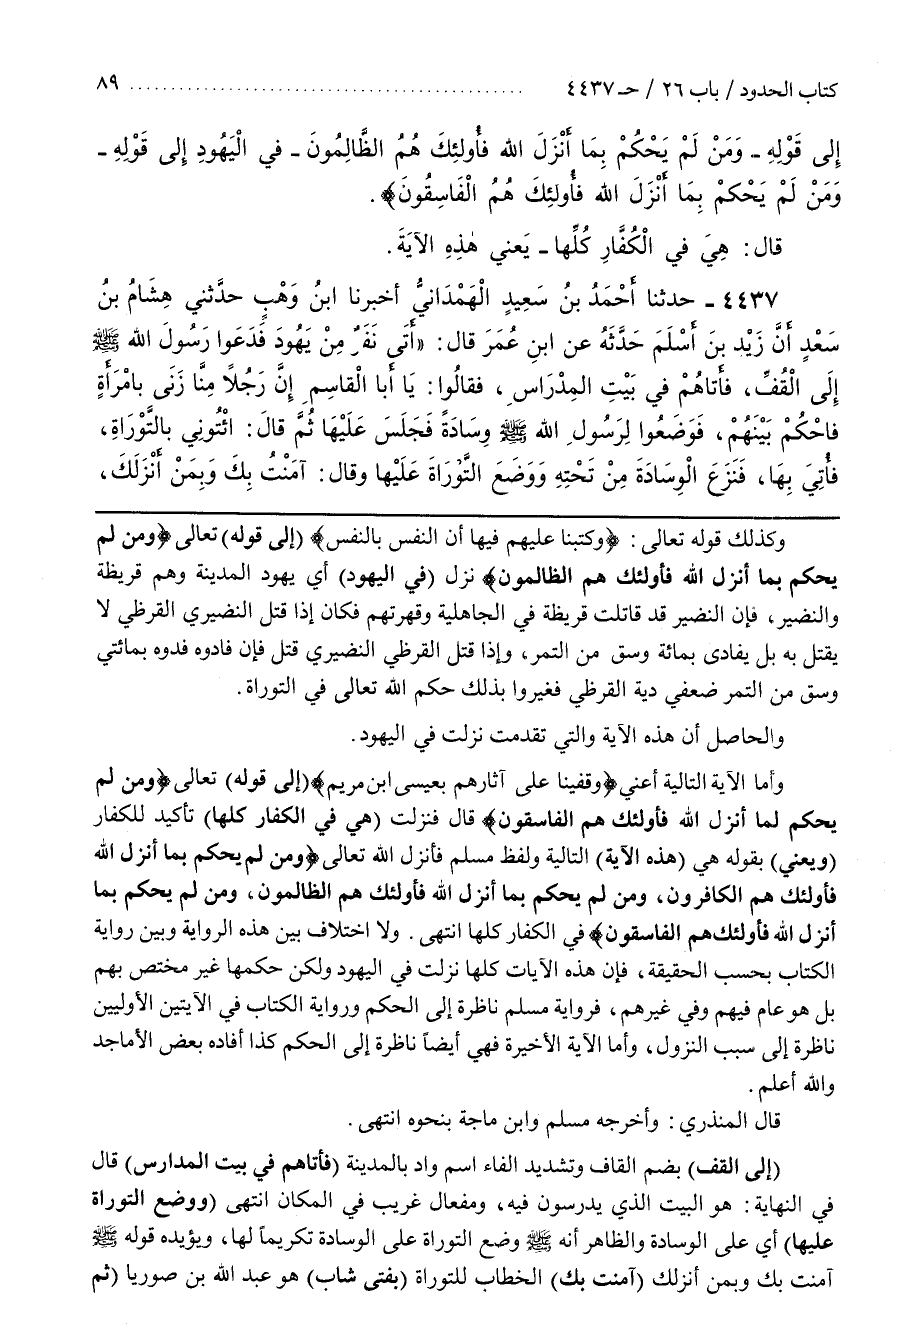 كتاب الحدود / باب ٢٦ / حـ ٤٤٣٧ ........................................ ٨٩
إلى قَوْلِهِ ـ وَمَنْ لَمْ يَحْكُمْ بِمَا أَنْزَلَ الله فأُولئِكَ هُمُ الظَّالِمُونَ ـ في الْيَهُودِ إلى قَوْلِهِ ـ
وَمَنْ لَمْ يَحْكمْ بِمَا أَنْزَلَ الله فأُولئِكَ هُمُ الْفَاسِقُونَ﴾.
قال: هِيَ في الْكُفَّارِ كُلِّها ـ يَعني هٰذِهِ الآيَةَ.
٤٤٣٧ ـ حدثنا أَحْمَدُ بنُ سَعِيدٍ الْهَمْدَانيُّ أخبرنا ابنُ وَهْبٍ حدَّثني هِشَامُ بنُ
سَعْدٍ أنَّ زَيْدَ بنَ أَسْلَمَ حَدَّثَهُ عن ابنِ عُمَرَ قال: «أَتَى نَفَرٌ مِنْ يَهُودَ فَدَعَوا رَسُولَ الله ﷺ
إلَى الْقُفِّ، فَأتاهُمْ في بَيْتِ المِدْرَاسِ، فقالُوا: يَا أَبا الْقاسِمِ إنَّ رَجُلاً مِنَّا زَنَى بامْرَأَةٍ
فاحْكُمْ بَيْنَهُمْ، فَوَضَعُوا لِرَسُولِ الله ﷺ وِسَادَةً فَجَلَسَ عَلَيْهَا ثُمَّ قالَ: ائْتُونِي بالتَّوْرَاةِ،
فأُتِيَ بِهَا، فَنَزَعَ الْوِسَادَةَ مِنْ تَحْتِهِ وَوَضَعَ التَّوْرَاةَ عَلَيْها وقال: آمَنْتُ بِكَ وَبِمَنْ أَنْزَلَكَ،
وكذلك قوله تعالى: ﴿وكتبنا عليهم فيها أن النفس بالنفس﴾ (إلى قوله) تعالى ﴿ومن لم
يحكم بما أنزل الله فأولئك هم الظالمون﴾ نزل (في اليهود) أي يهود المدينة وهم قريظة
والنضير، فإن النضير قد قاتلت قريظة في الجاهلية وقهرتهم فكان إذا قتل النضيري القرظي لا
يقتل به بل يفادى بمائة وسق من التمر، وإذا قتل القرظي النضيري قتل فإن فادوه فدوه بمائتي
وسق من التمر ضعفي دية القرظي فغيروا بذلك حكم الله تعالى في التوراة.
والحاصل أن هذه الآية والتي تقدمت نزلت في اليهود.
وأما الآية التالية أعني ﴿وقفينا على آثارهم بعيسى ابن مريم﴾ (إلى قوله) تعالى ﴿ومن لم
يحكم لما أنزل الله فأولئك هم الفاسقون﴾ قال فنزلت (هي في الكفار كلها) تأكيد للكفار
(ويعني) بقوله هي (هذه الآية) التالية ولفظ مسلم فأنزل الله تعالى ﴿ومن لم يحكم بما أنزل الله
فأولئك هم الكافرون، ومن لم يحكم بما أنزل الله فأولئك هم الظالمون، ومن لم يحكم بما
أنزل الله فأولئك هم الفاسقون﴾ في الكفار كلها انتهى. ولا اختلاف بين هذه الرواية وبين رواية
الكتاب بحسب الحقيقة، فإن هذه الآيات كلها نزلت في اليهود ولكن حكمها غير مختص بهم
بل هو عام فيهم وفي غيرهم، فرواية مسلم ناظرة إلى الحكم ورواية الكتاب في الآيتين الأوليين
ناظرة إلى سبب النزول، وأما الآية الأخيرة فهي أيضاً ناظرة إلى الحكم كذا أفاده بعض الأماجد
والله أعلم.
قال المنذري: وأخرجه مسلم وابن ماجة بنحوه انتهى.
(إلى القف) بضم القاف وتشديد الفاء اسم واد بالمدينة (فأتاهم في بيت المدارس) قال
في النهاية: هو البيت الذي يدرسون فيه، ومفعال غريب في المكان انتهى (ووضع التوراة
عليها) أي على الوسادة والظاهر أنه ﷺ وضع التوراة على الوسادة تكريماً لها، ويؤيده قوله ﷺ
آمنت بك وبمن أنزلك (آمنت بك) الخطاب للتوراة (بفتى شاب) هو عبد الله بن صوريا (ثم